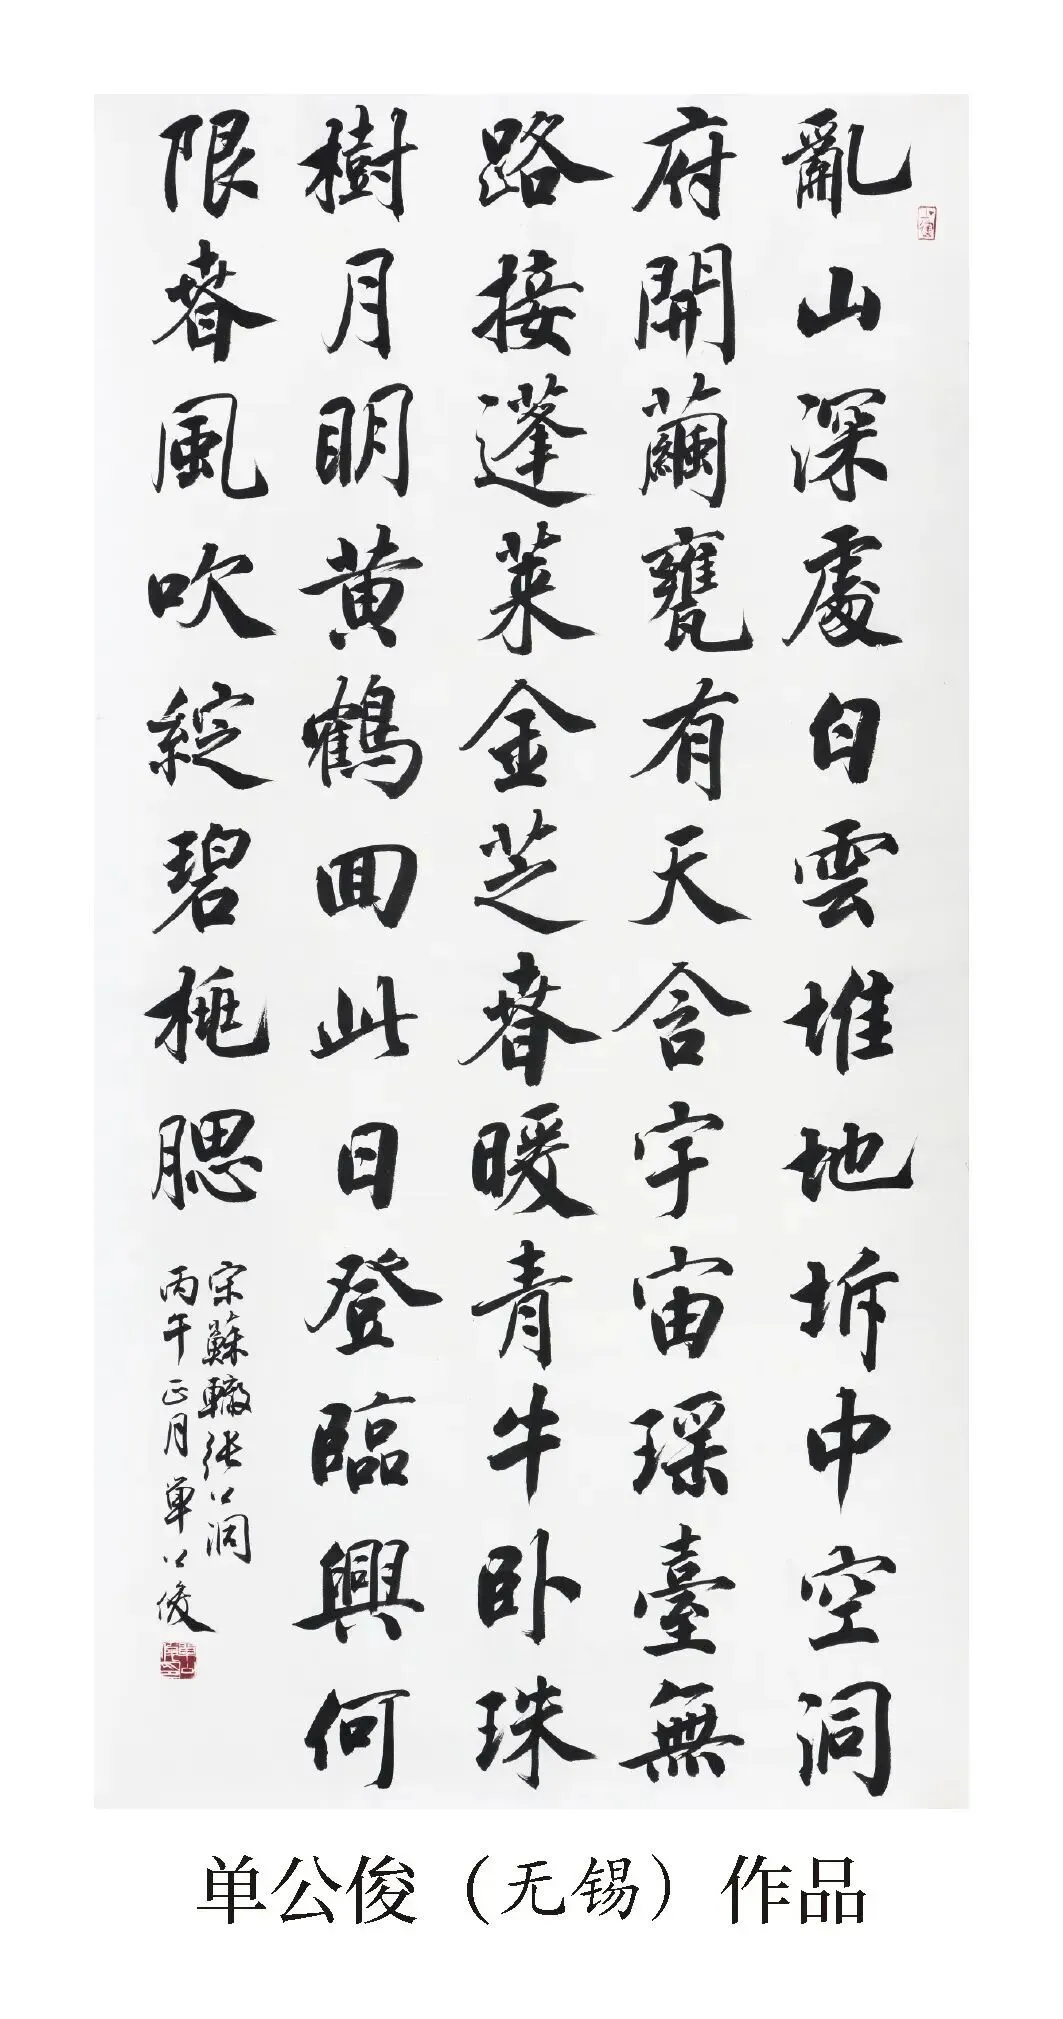 亂山深處白雲堆地坼中空洞
府開蘭甕有天含宇宙瑶臺無
路接蓬萊金芝春暖青牛卧珠
樹月明黄鶴回此日登臨興何
限春風吹綻碧桃腮
宋蘇轍張公洞
丙午正月單公俊
单公俊（无锡）作品